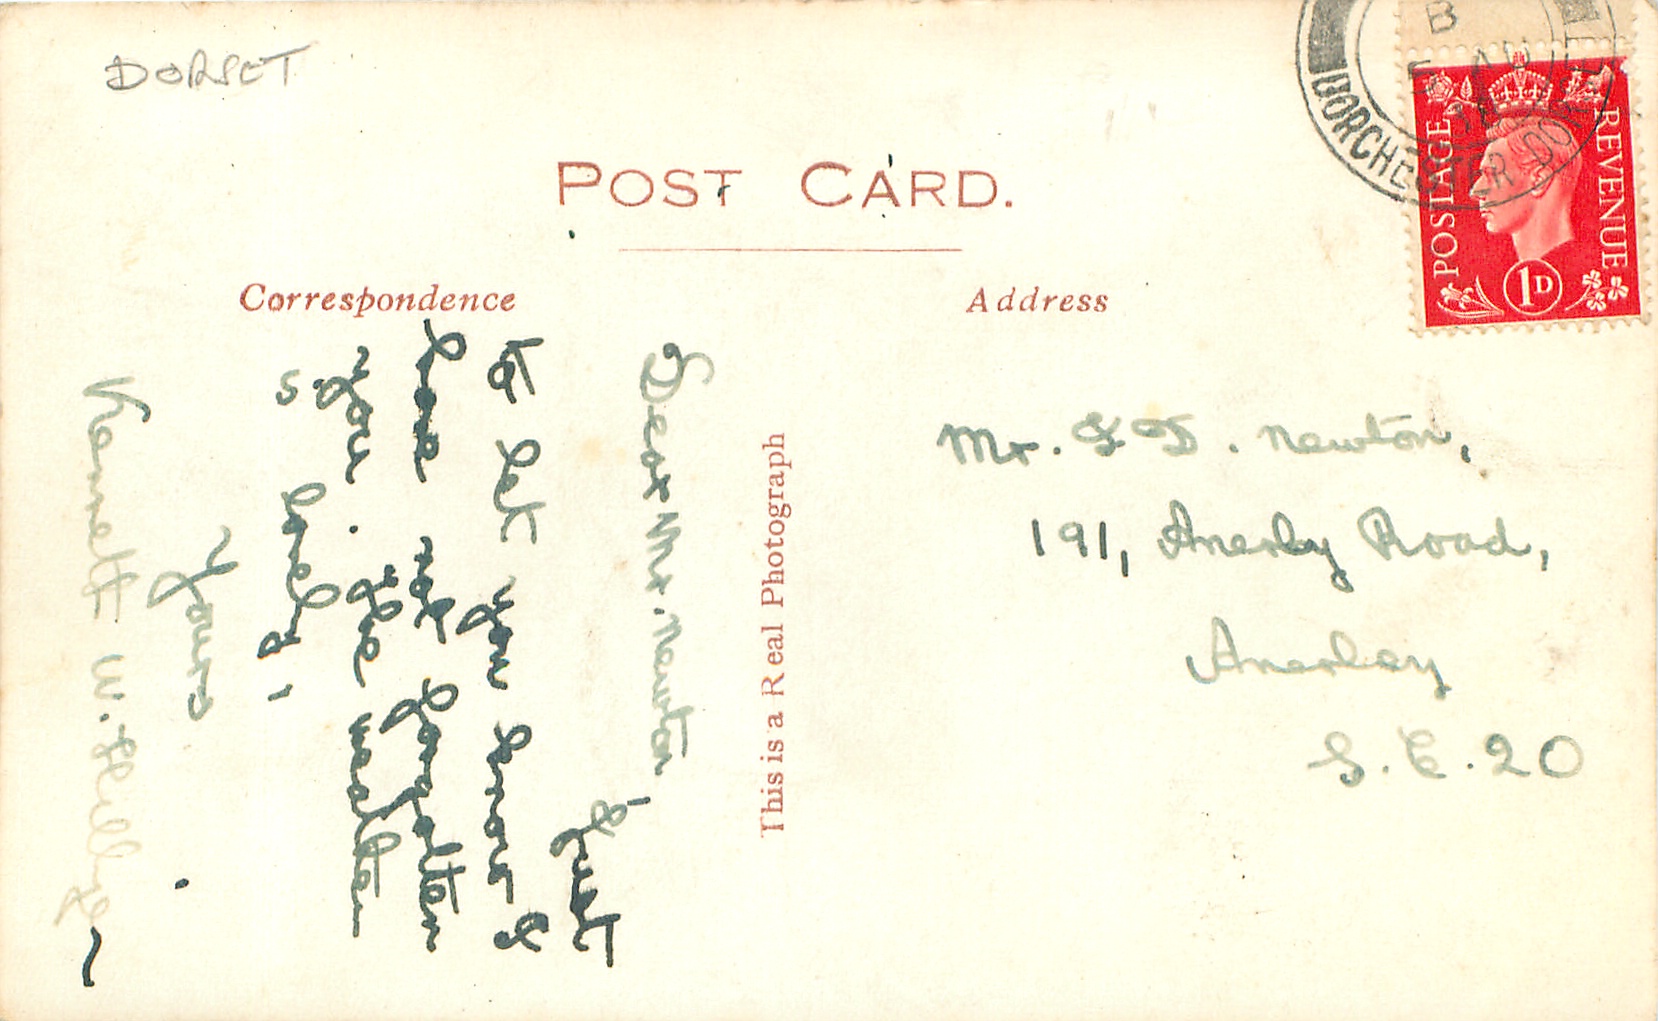 DORSET
POST CARD.
Correspondence
Address
B
5 AU
DORCHESTER DO
POSTAGE
REVENUE
1D
Mr. S D. Newton,
191, Anerley Road,
Anerley
S.E.20
This is a Real Photograph
Dear Mr. Newton,
Just
to let you know I
have not forgotten
you. The weather
is lovely,
Yours
Kennett W.